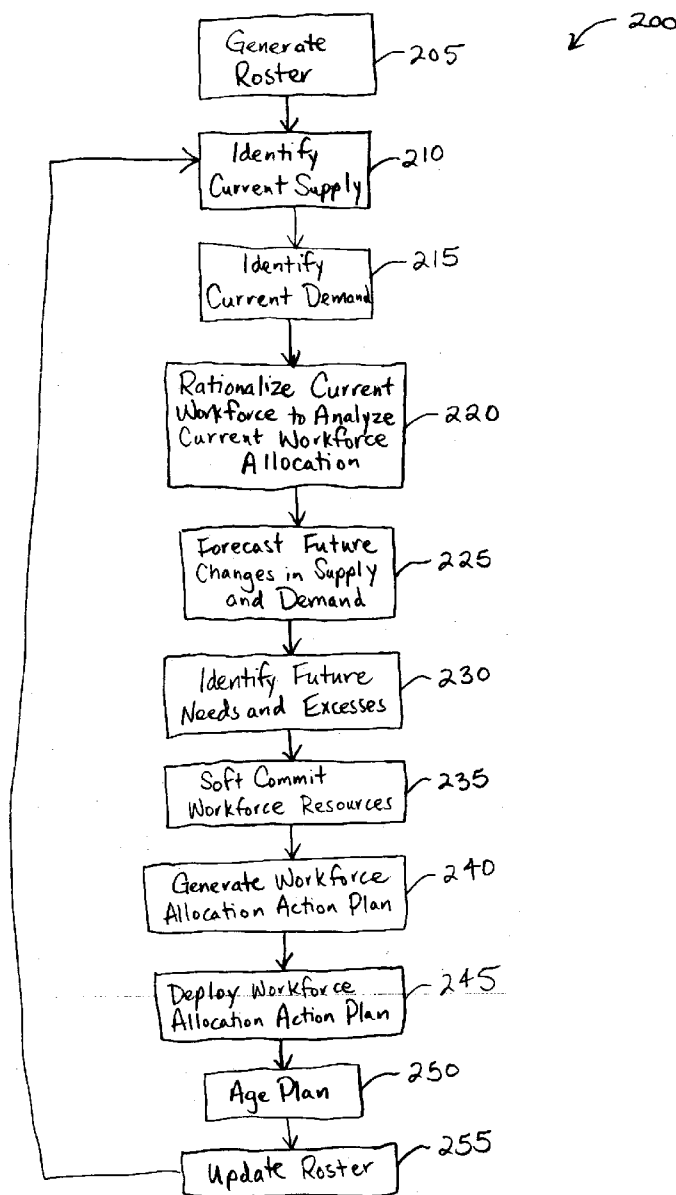 200
Generate
Roster
205
Identify
Current Supply
210
Identify
Current Demand
215
Rationalize Current
Workforce to Analyze
Current Workforce
Allocation
220
Forecast Future
Changes in Supply
and Demand
225
Identify Future
Needs and Excesses
230
Soft Commit
Workforce Resources
235
Generate Workforce
Allocation Action Plan
240
Deploy Workforce
Allocation Action Plan
245
Age Plan
250
Update Roster
255